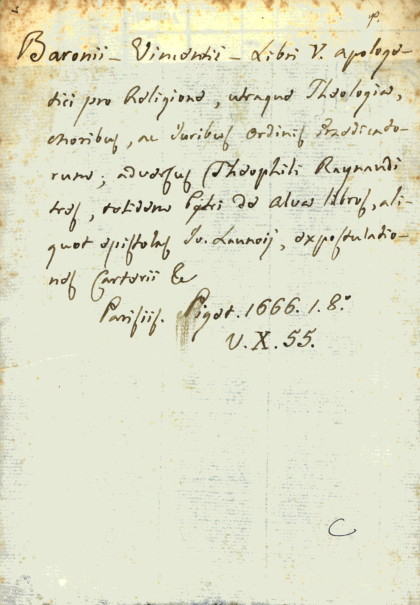 p.
Baronii - Vincentii - Libri V. apologe-
tici pro Religione, utraque Theologia,
moribus, ac Juribus Ordinis Praedicato-
rum; adversus Theophili Raynaudi
tres, totidem Petri de Alva libros, ali-
quot epistolas Jo. Launoij, expostulatio-
nes Carterii &c
Parisiis. Piget. 1666. 1. 8.º
V. X. 55.
C